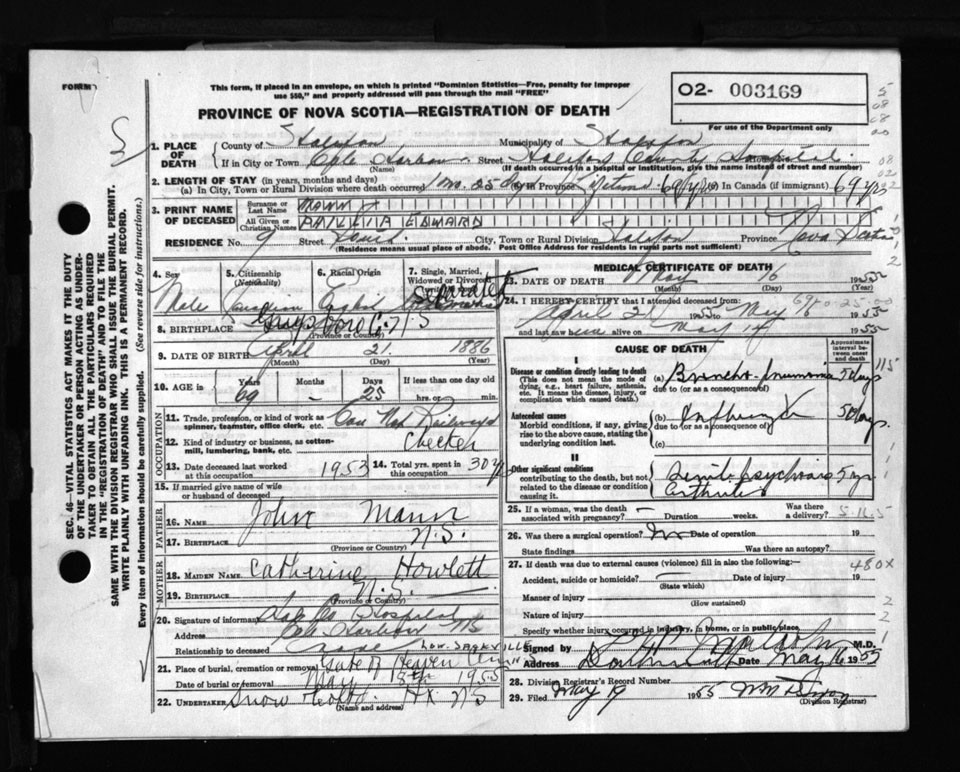 FORM
This form, if placed in an envelope, on which is printed "Dominion Statistics—Free, penalty for improper
use $50," and properly addressed will pass through the mail "FREE"
O2- 003169
For use of the Department only
PROVINCE OF NOVA SCOTIA—REGISTRATION OF DEATH
SEC. 46—VITAL STATISTICS ACT MAKES IT THE DUTY
OF THE UNDERTAKER OR PERSON ACTING AS UNDERTAKER TO OBTAIN ALL THE PARTICULARS REQUIRED
IN THE "REGISTRATION OF DEATH" AND TO FILE THE
SAME WITH THE DIVISION REGISTRAR WHO SHALL ISSUE THE BURIAL PERMIT.
WRITE PLAINLY WITH UNFADING INK. THIS IS A PERMANENT RECORD.
Every item of information should be carefully supplied. (See reverse side for instructions.)
1. PLACE OF DEATH County of Halifax Municipality of Halifax
If in City or Town Cole Harbour Street Halifax County Hospital
(Name) (If death occurred in a hospital or institution, give the name instead of street and number)
2. LENGTH OF STAY (in years, months and days)
(a) In City, Town or Rural Division where death occurred 1 mo. 25 dys In Province Lifetime 69 yrs In Canada (if immigrant) 69 yrs
3. PRINT NAME OF DECEASED Surname or Last Name MANN
All Given or Christian Names EDWARD
RESIDENCE No. 9 Street City, Town or Rural Division Halifax Province Nova Scotia
(Residence means usual place of abode. Post Office Address for residents in rural parts not sufficient)
4. Sex Male
5. Citizenship (Nationality) Canadian
6. Racial Origin English
7. Single, Married, Widowed or Divorced Separated
8. BIRTHPLACE Guysboro Co. N S
(Province or Country)
9. DATE OF BIRTH April 21 1886
(Month) (Day) (Year)
10. AGE in Years 69 Months - Days 25 If less than one day old hrs. or min.
OCCUPATION
11. Trade, profession, or kind of work as spinner, teamster, office clerk, etc. Can Nat Railways
12. Kind of industry or business, as cotton-mill, lumbering, bank, etc. Checker
13. Date deceased last worked at this occupation 1953 14. Total yrs. spent in this occupation 30 y
15. If married give name of wife or husband of deceased
FATHER
16. NAME John Mann
17. BIRTHPLACE N.S.
(Province or Country)
MOTHER
18. MAIDEN NAME Catherine Howlett
19. BIRTHPLACE N.S.
(Province or Country)
20. Signature of informant Hfx Co Hospital
Address Cole Harbour NS
Relationship to deceased none
LOW. SACKVILLE
21. Place of burial, cremation or removal Gate of Heaven
Date of burial or removal May 18th 1955
22. UNDERTAKER Snow HX NS
(Name and address)
MEDICAL CERTIFICATE OF DEATH
23. DATE OF DEATH May 16 1955
(Month) (Day)
24. I HEREBY CERTIFY that I attended deceased from:
April 21 1955 to May 16 1955
and last saw him alive on May 14 1955
CAUSE OF DEATH
Approximate interval between onset and death
I
Disease or condition directly leading to death
(This does not mean the mode of dying, e.g., heart failure, asthenia, etc. It means the disease, injury, or complication which caused death.)
(a) Broncho-pneumonia 5 days
due to (or as a consequence of)
Antecedent causes
Morbid conditions, if any, giving rise to the above cause, stating the underlying condition last.
(b) Influenza 5 days
due to (or as a consequence of)
(c)
II
Other significant conditions
contributing to the death, but not related to the disease or condition causing it.
Senile psychosis 5 yr
Arthritis
25. If a woman, was the death associated with pregnancy? — Duration weeks. Was there a delivery?
26. Was there a surgical operation? No Date of operation 19
State findings Was there an autopsy?
27. If death was due to external causes (violence) fill in also the following:—
480X
Accident, suicide or homicide? Date of injury 19
(State which)
Manner of injury
(How sustained)
Nature of injury
Specify whether injury occurred in industry, in home, or in public place
Signed by M.D.
Address Dartmouth Date May 16 1955
28. Division Registrar's Record Number
29. Filed May 19 1955
(Division Registrar)